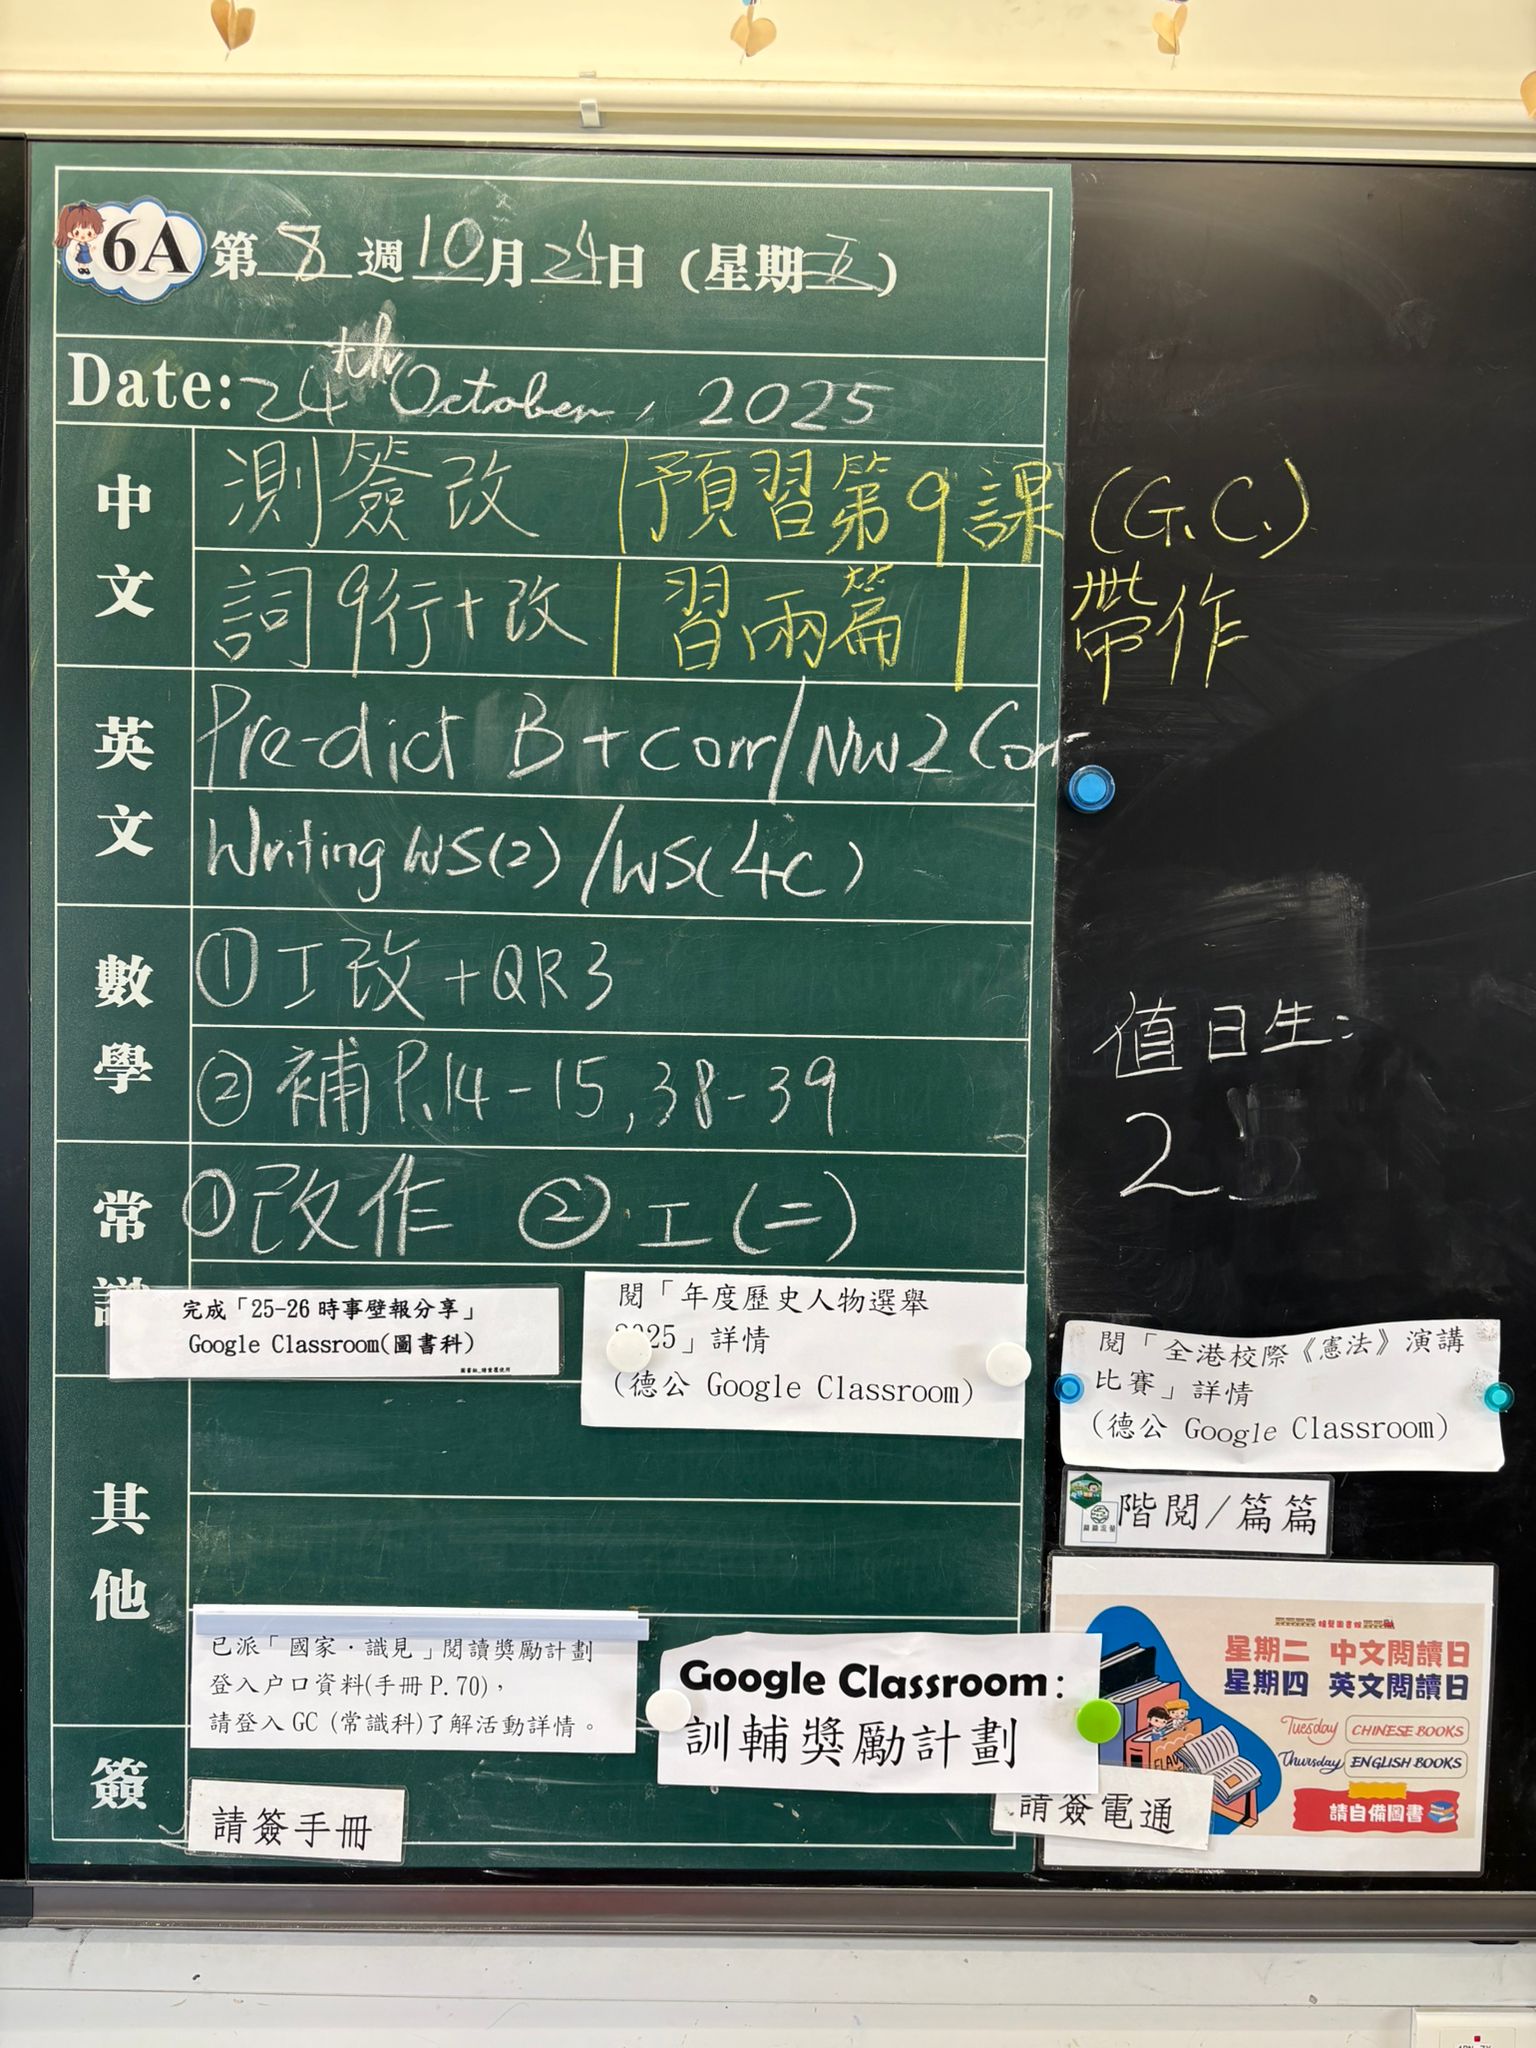 6A 第8週10月24日(星期五)
Date: 24th October, 2025
中文
測簽改 | 預習第9課 (G.C.)
詞9行+改 | 習兩篇 | 帶作
英文
Pre-dict B + corr / NW2 Corr
Writing WS(2) / WS(4C)
數學
① 工改 + QR3
② 補 P.14-15, 38-39
值日生:
2
常識
① 改作 ② 工(二)
完成「25-26 時事壁報分享」
Google Classroom(圖書科)
閱「年度歷史人物選舉
2025」詳情
(德公 Google Classroom)
閱「全港校際《憲法》演講
比賽」詳情
(德公 Google Classroom)
其他
階閱/篇篇
已派「國家·識見」閱讀獎勵計劃
登入户口資料(手冊 P.70),
請登入 GC (常識科)了解活動詳情。
Google Classroom:
訓輔獎勵計劃
星期二 中文閱讀日
星期四 英文閱讀日
Tuesday CHINESE BOOKS
Thursday ENGLISH BOOKS
請自備圖書
簽
請簽手冊
請簽電通